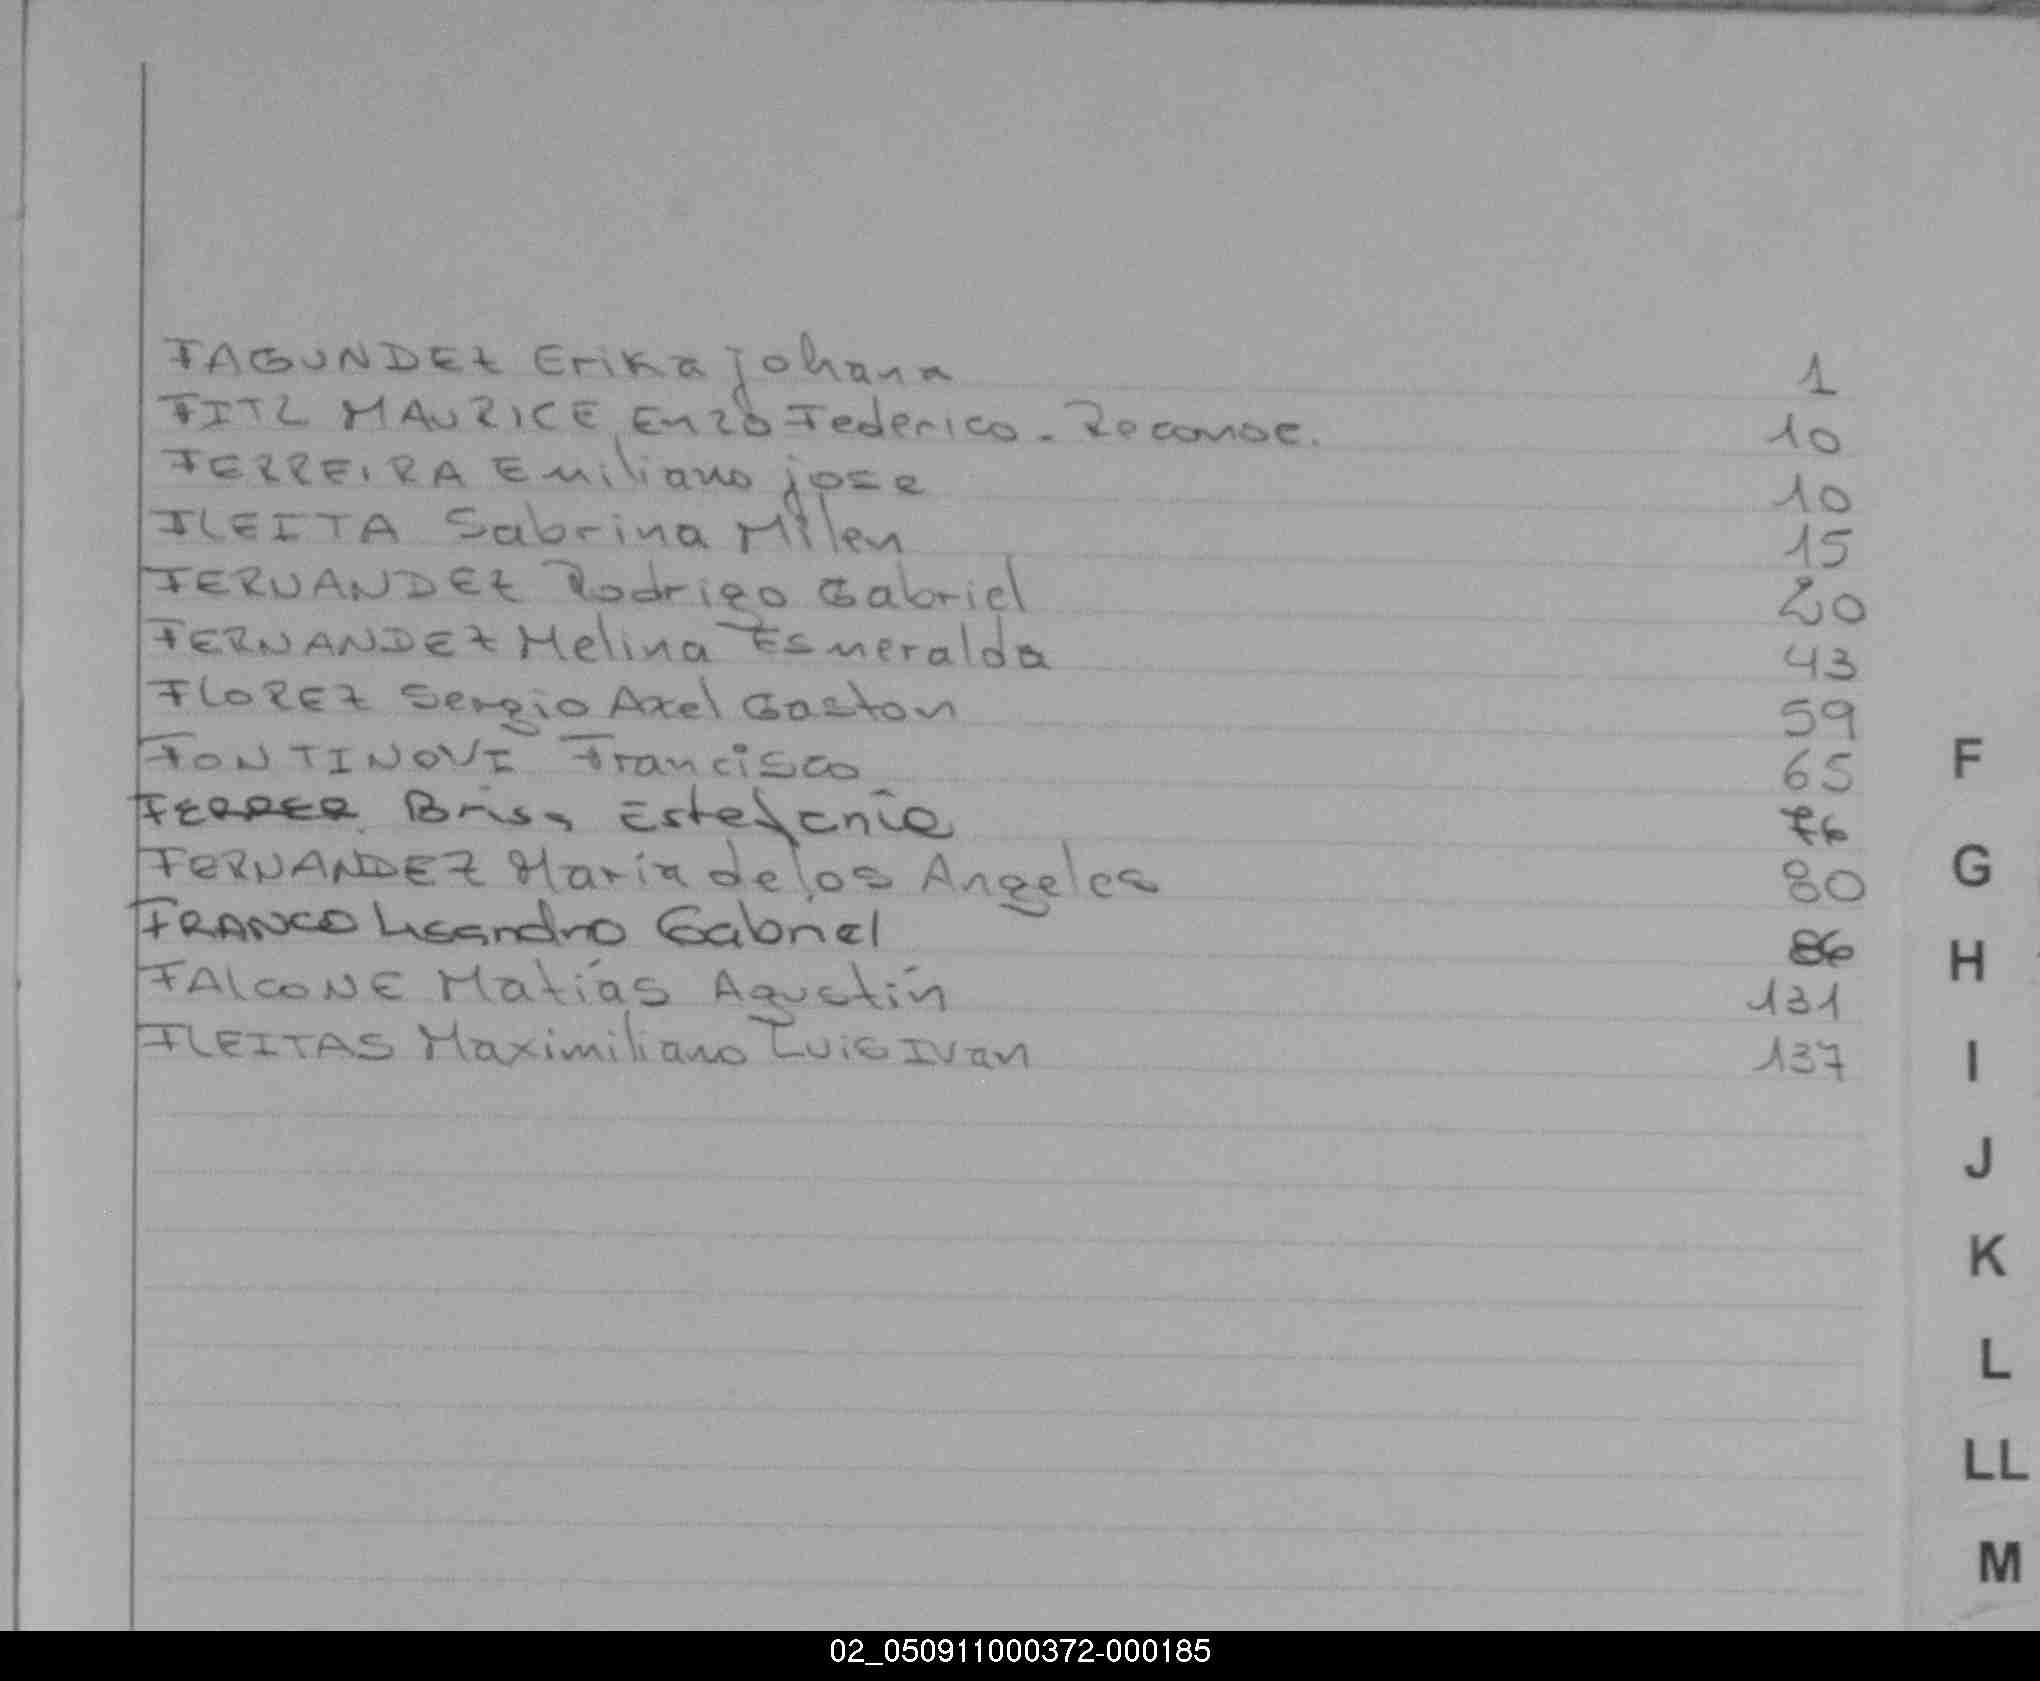 FAGUNDEZ Erika Johana 1
FITZ MAURICE, Enzo Federico. Reconoc. 10
FERREIRA Emiliano jose 10
FLEITA Sabrina Milen 15
FERNANDEZ Rodrigo Gabriel 20
FERNANDEZ Melina Esmeralda 43
FLOREZ Sergio Axel Gaston 59
FONTINOVI Francisco 65
FERRER Brisa Estefanía 76
FERNANDEZ María de los Angeles 80
FRANCO Lisandro Gabriel 86
FALCONE Matías Agustín 131
FLEITAS Maximiliano Luis Ivan 137
F
G
H
I
J
K
L
LL
M
02_050911000372-000185